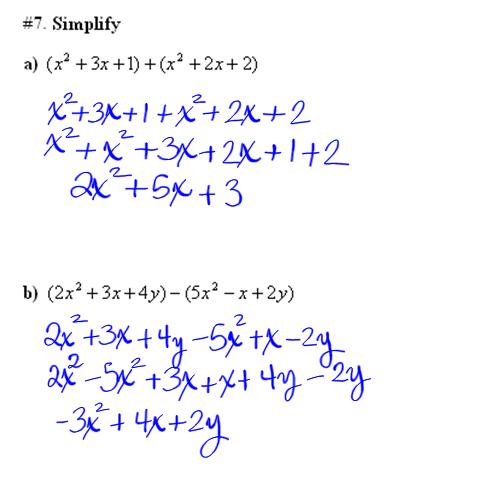 #7. Simplify
a) (x² + 3x + 1) + (x² + 2x + 2)
x² + 3x + 1 + x² + 2x + 2
x² + x² + 3x + 2x + 1 + 2
2x² + 5x + 3
b) (2x² + 3x + 4y) − (5x² − x + 2y)
2x² + 3x + 4y − 5x² + x − 2y
2x² − 5x² + 3x + x + 4y − 2y
−3x² + 4x + 2y